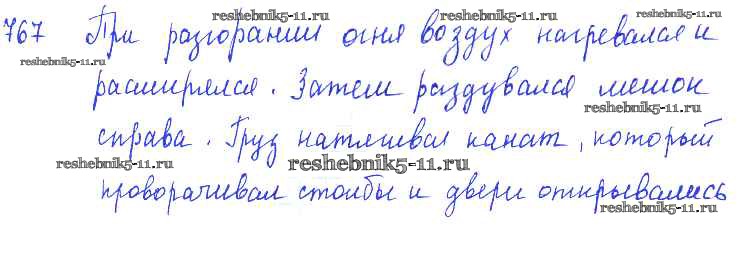 reshebnik5-11.ru reshebnik5-11.ru
767 При разгорании огня воздух нагревался и
reshebnik5-11.ru
расширялся. Затем раздувался мешок
reshebnik5-11.ru
справа. Груз натягивал канат, который
reshebnik5-11.ru reshebnik5-11.ru
проворачивал столбы и двери открывались
reshebnik5-11.ru